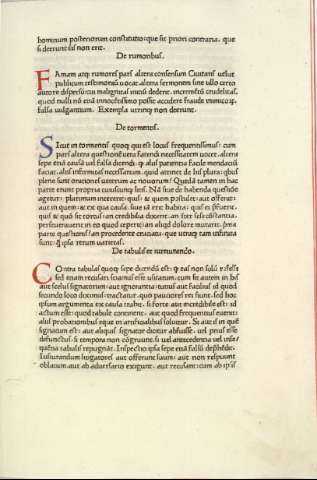 hominum posteriorum constitutio: que sit priori contraria. que
si deerunt id non erit.
De rumoribus.
FAmam atq; rumores pars altera consensum Ciuitatis uelut
publicum testimoniũ uocat: altera sermonem sine ullo certo
autore dispersũ: cui malignitas initiũ dederit. incremẽtũ credulitas.
quod nulli nõ etiã innocẽtissimo possit accedere fraude inimicoꝝ
falsa uulgantium. Exempla utrinq; non deerunt.
De tormentis.
SIcut in tormentis quoq; qui est locus frequentissimus: cum
pars altera questionẽ uera fatendi necessitatem uocet. altera
sepe etiã causã uel falsa dicendi. q; aliis patientia facile mendaciũ
faciat. aliis infirmitas necessarium. quid attinet de his plura: qbus
plene sunt orationes ueterum ac nouorum? Quedã tamen in hac
parte erunt propria cuiusq; litis. Nã siue de habenda questiõe
agetur: plurimum intererit: quis: & quem postulet: aut offerat:
aut in quem: & ex qua causa. siue iã erit habita: quis ei prefuerit.
quis & quõ sit tortus: an credibilia dixerit: an sibi cõstãtia.
perseuerauerit in eo quod ceperit: an aliqd dolore mutarit. prima
parte questionis: an procedente cruciatu. que utraq; tam infinita
sunt: q̃ ipsa rerum uarietas.
De tabulis et iureiurando.
COntra tabulas quoq; sepe dicendũ est: q eas non solũ refelli
sed etiam accusari sciamus esse usitatum. cum sit autem in his
aut scelus signatorum: aut ignorantia: tutius aut facilius id quod
secundo loco diximus: tractatur. quo pauciores rei fiunt. sed hoc
ipsum argumenta ex causa trahit. si forte aut incredibile est: id
actum esse: quod tabule continent. aut quod frequentius euenit:
aliis probationibus eque in artificialibus soluitur. Si aut is in quẽ
signatum est: aut aliquis signator dicitur abfuisse. uel prius esse
defunctus: si tempora non cõgruunt: si uel antecedentia uel insequentia
tabulis repugnãt. Inspectio ipsa sepe etiã falsũ deprehẽdit.
Iusiurandum litigatores aut offerunt suum: aut non recipiunt
oblatum aut ab aduersario exigunt. aut recusant: cum ab ipsis